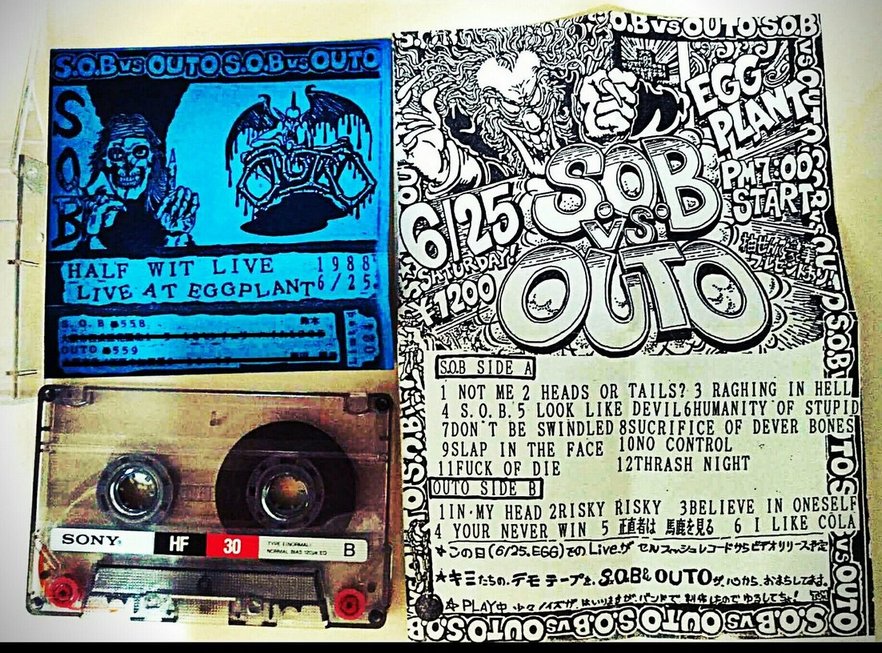 S.O.B vs OUTO S.O.B vs OUTO
SOB
OUTO
HALF WIT LIVE 1988
LIVE AT EGGPLANT 6/25
S.O.B ☎558
OUTO ☎559
SONY HF 30 TYPE I (NORMAL)
NORMAL BIAS 120μs EQ B
S.O.B vs OUTO S.O.B
EGG
PLANT
PM7:00
START
6/25
SATURDAY!
¥1200
S.O.B
VS
OUTO
S.O.B SIDE A
1 NOT ME 2 HEADS OR TAILS? 3 RAGHING IN HELL
4 S.O.B. 5 LOOK LIKE DEVIL 6HUMANITY OF STUPID
7DON'T BE SWINDLED 8SUCRIFICE OF DEVER BONES
9SLAP IN THE FACE 10NO CONTROL
11FUCK OF DIE 12THRASH NIGHT
OUTO SIDE B
1IN·MY HEAD 2RISKY RISKY 3BELIEVE IN ONESELF
4 YOUR NEVER WIN 5 正直者は 馬鹿を見る 6 I LIKE COLA
★この日(6/25.EGG)でのLiveが セルフィッシュレコードからビデオリリース予定
★キミたちの、デモテープを、S.O.B& OUTOが、
☆PLAY中 少々ノイズが、はいりますが、バンドで
S.O.B vs OUTO S.O.B vs OUTO S.O.B vs OUTO